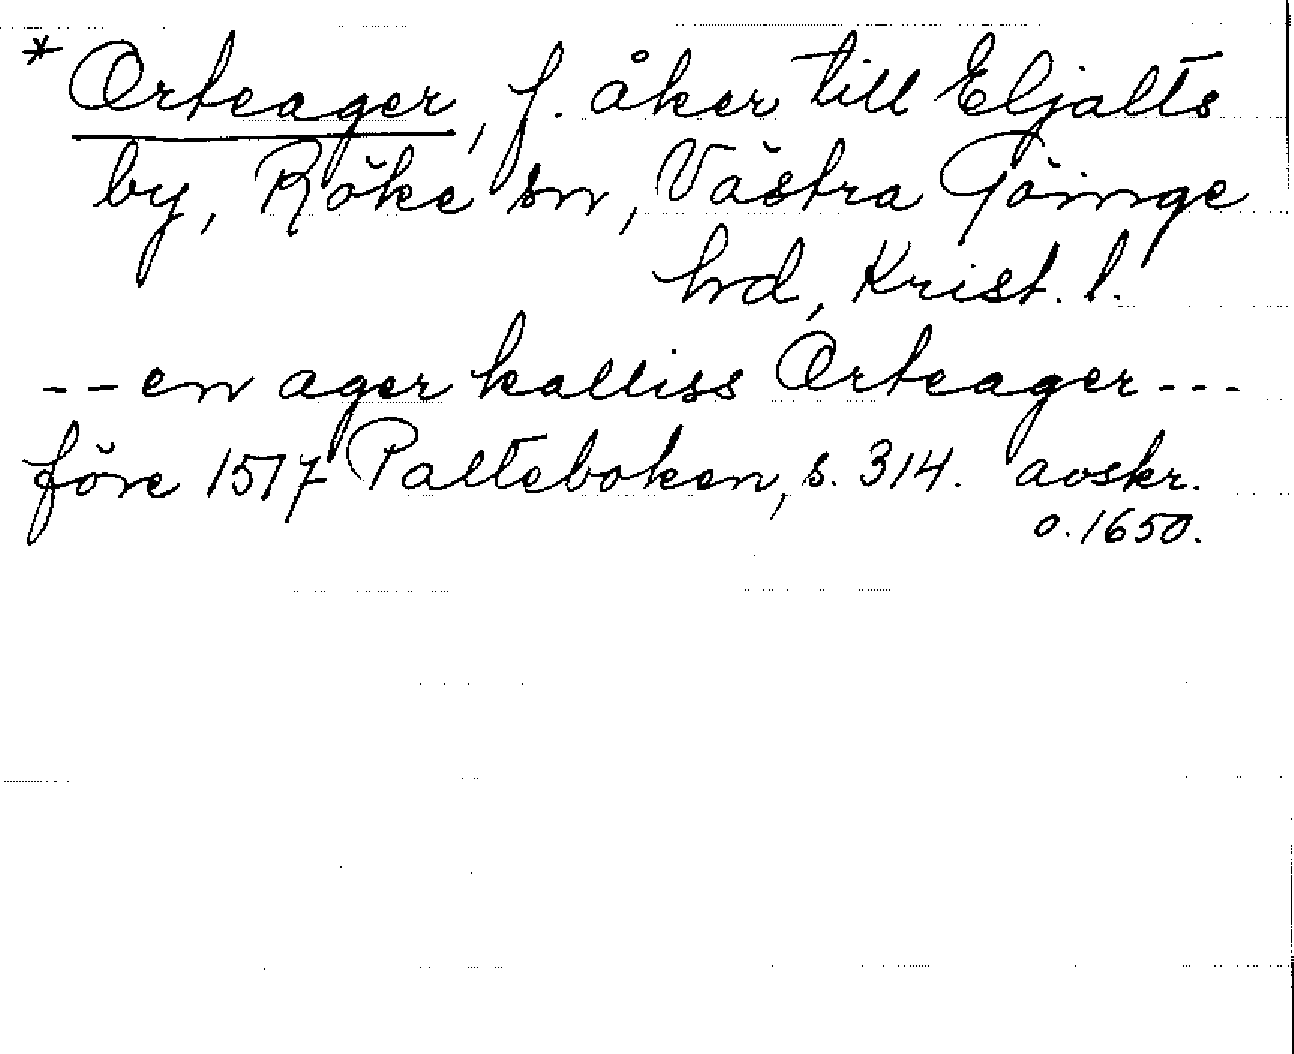 * Orteager, f. åker till Eljalts
by, Röke sn, Västra Göinge
hrd, Krist. l.
-- en ager kalliss Orteager ---
före 1517 Palteboken, s. 314. avskr.
o. 1650.